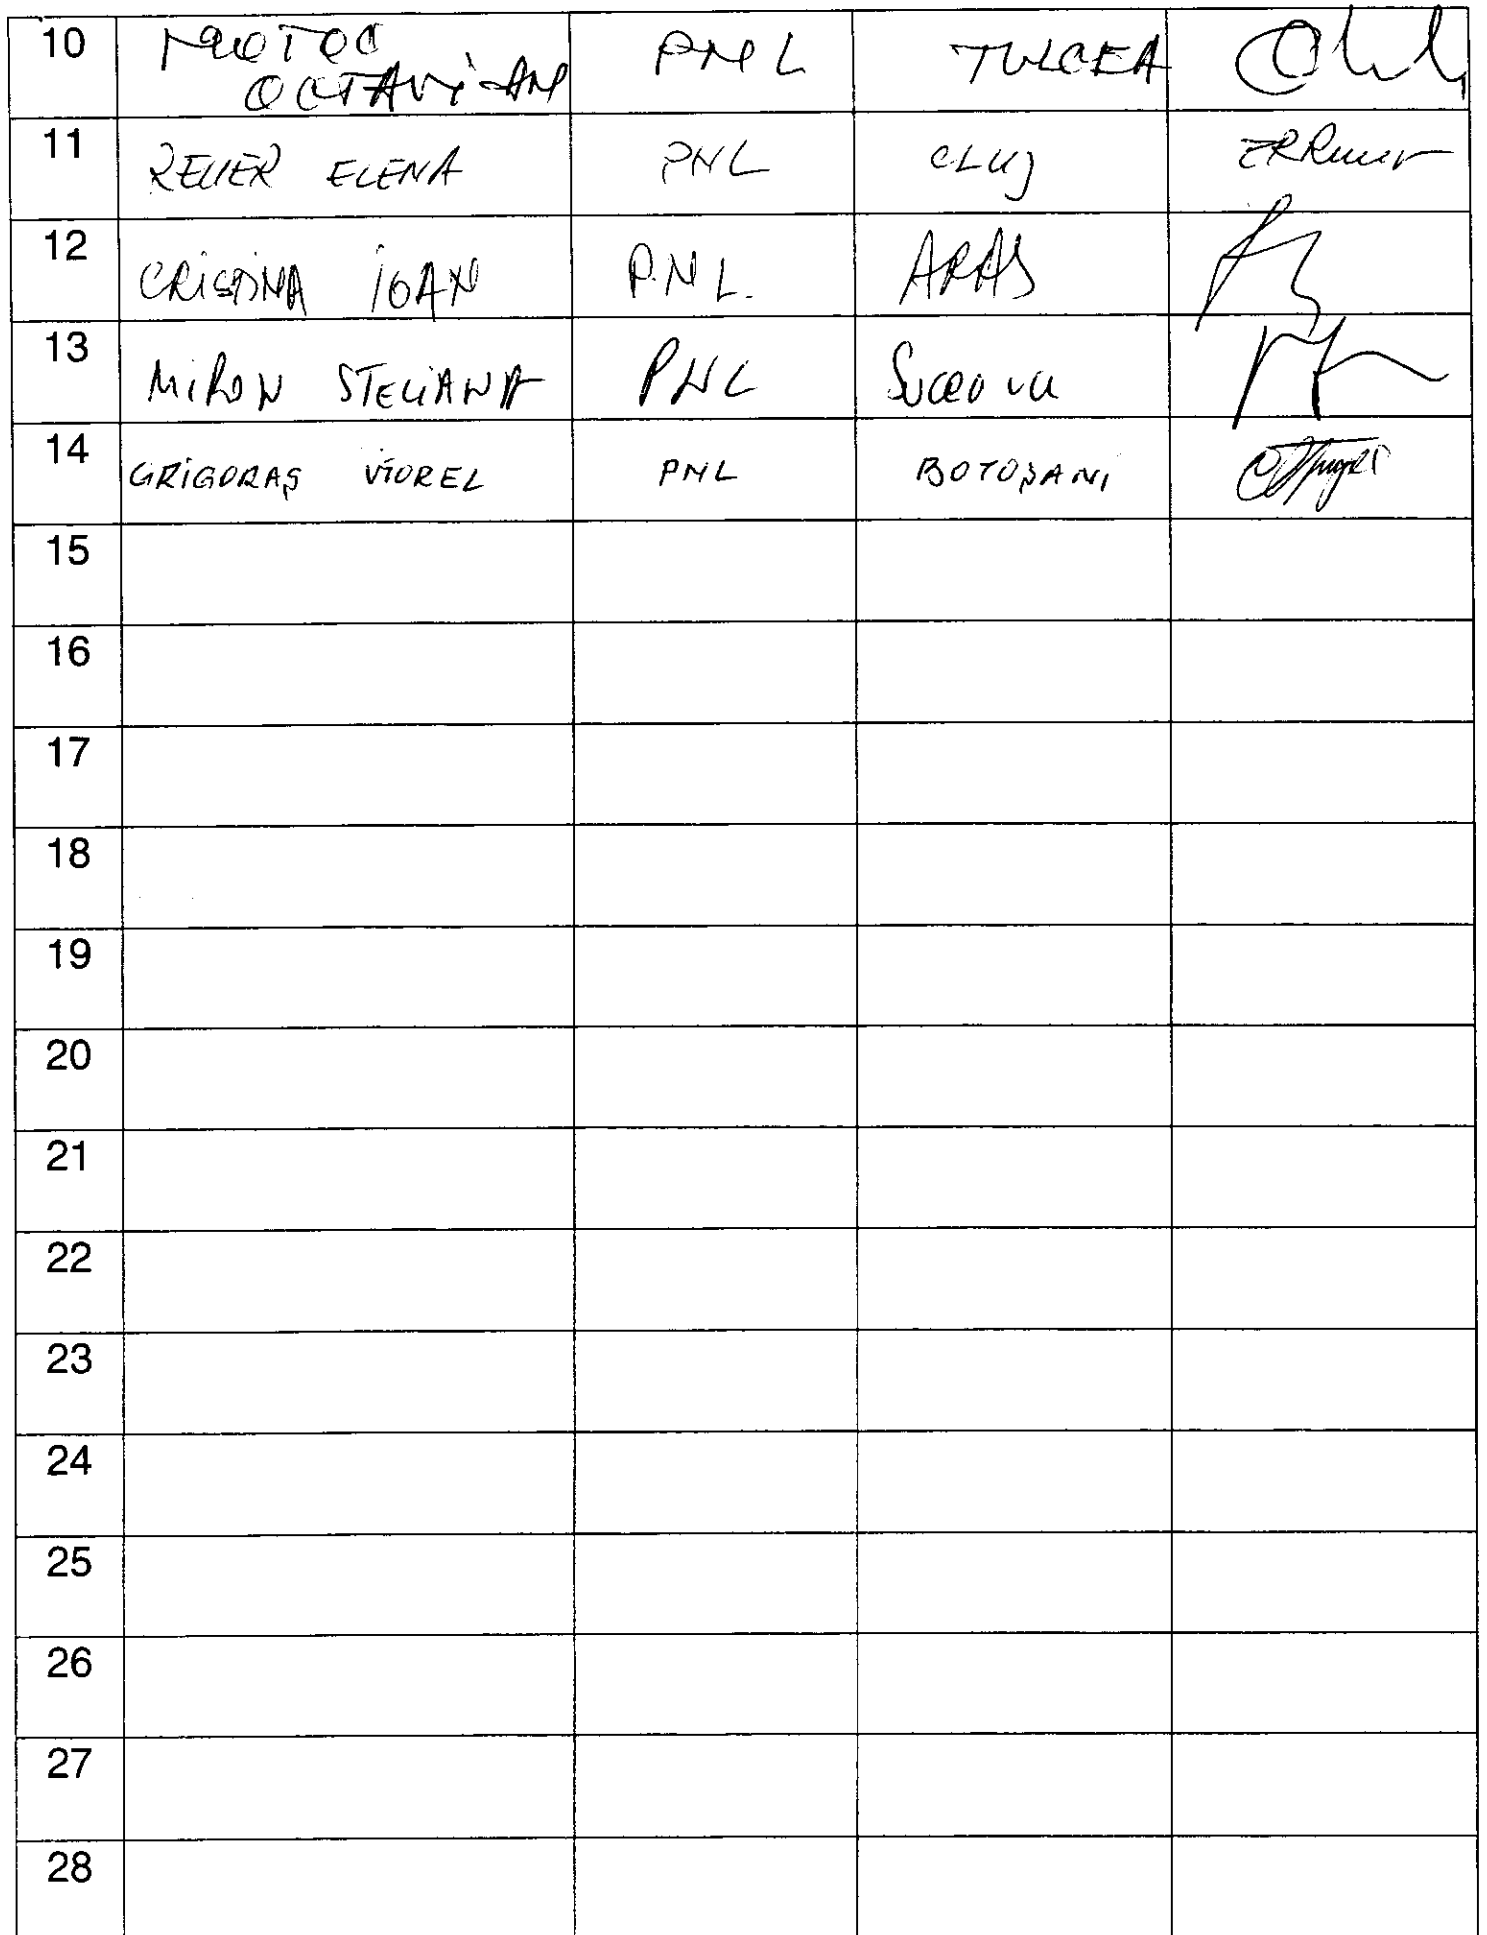 10 MOTOC PNL TULCEA
OCTAVIAN
11 REUER ELENA PNL CLUJ
12 CRISTINA IOAN P.N.L. ARAD
13 MIRON STELIANA PNL Suceava
14 GRIGORAȘ VIOREL PNL BOTOȘANI
15
16
17
18
19
20
21
22
23
24
25
26
27
28